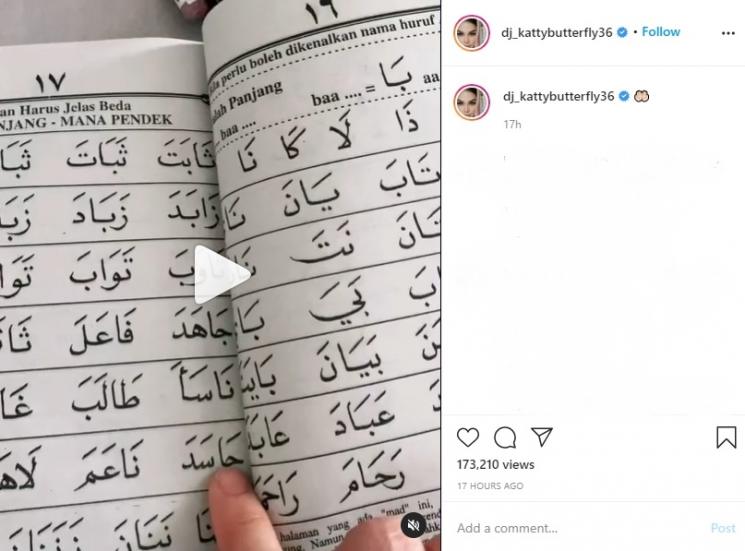 ١٧
an Harus Jelas Beda
NJANG - MANA PENDEK
ثَابَتَ ثَبَاتَ
زَابَدَ زَبَادَ
تَوَابَ
جَاهَدَ فَاعَلَ
نَاسَأَ طَالَبَ
حَاسَدَ نَاعَمَ
نَنَانَ
١٦
perlu boleh dikenalkan nama huruf
lah Panjang
baa .... = بَا aa
baa ....
ذَا لَا كَا نَا
تَابَ يَانَ
نَتَ
بَيَ بَا
بَيَانَ
عَبَادَ عَابَدَ
رَحَامَ
halaman yang ada "mad" ini,
Namun
dj_kattybutterfly36 • Follow
dj_kattybutterfly36
17h
173,210 views
17 HOURS AGO
Add a comment...
Post